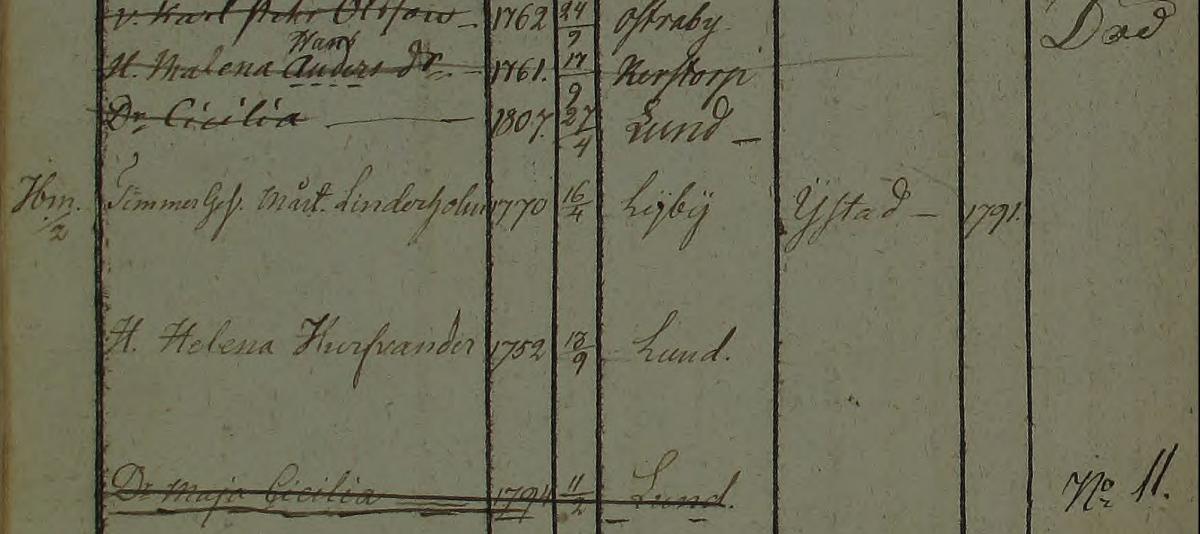 v. Karl Pehr Olsson 1762 24/9 Ostraby Död
Hans
H. Malena Anders dr. 1761. 17/9 Kerstorp
Dr Cicilia 1807. 27/4 Lund
Hm. 1/2 Timmer Ges. Mårt. Linderholm 1770 16/4 Lyby Ystad 1791.
H. Helena Kurfvander 1752 13/9 Lund.
Dr Maja Cicilia 1794 11/2 Lund. No 11.